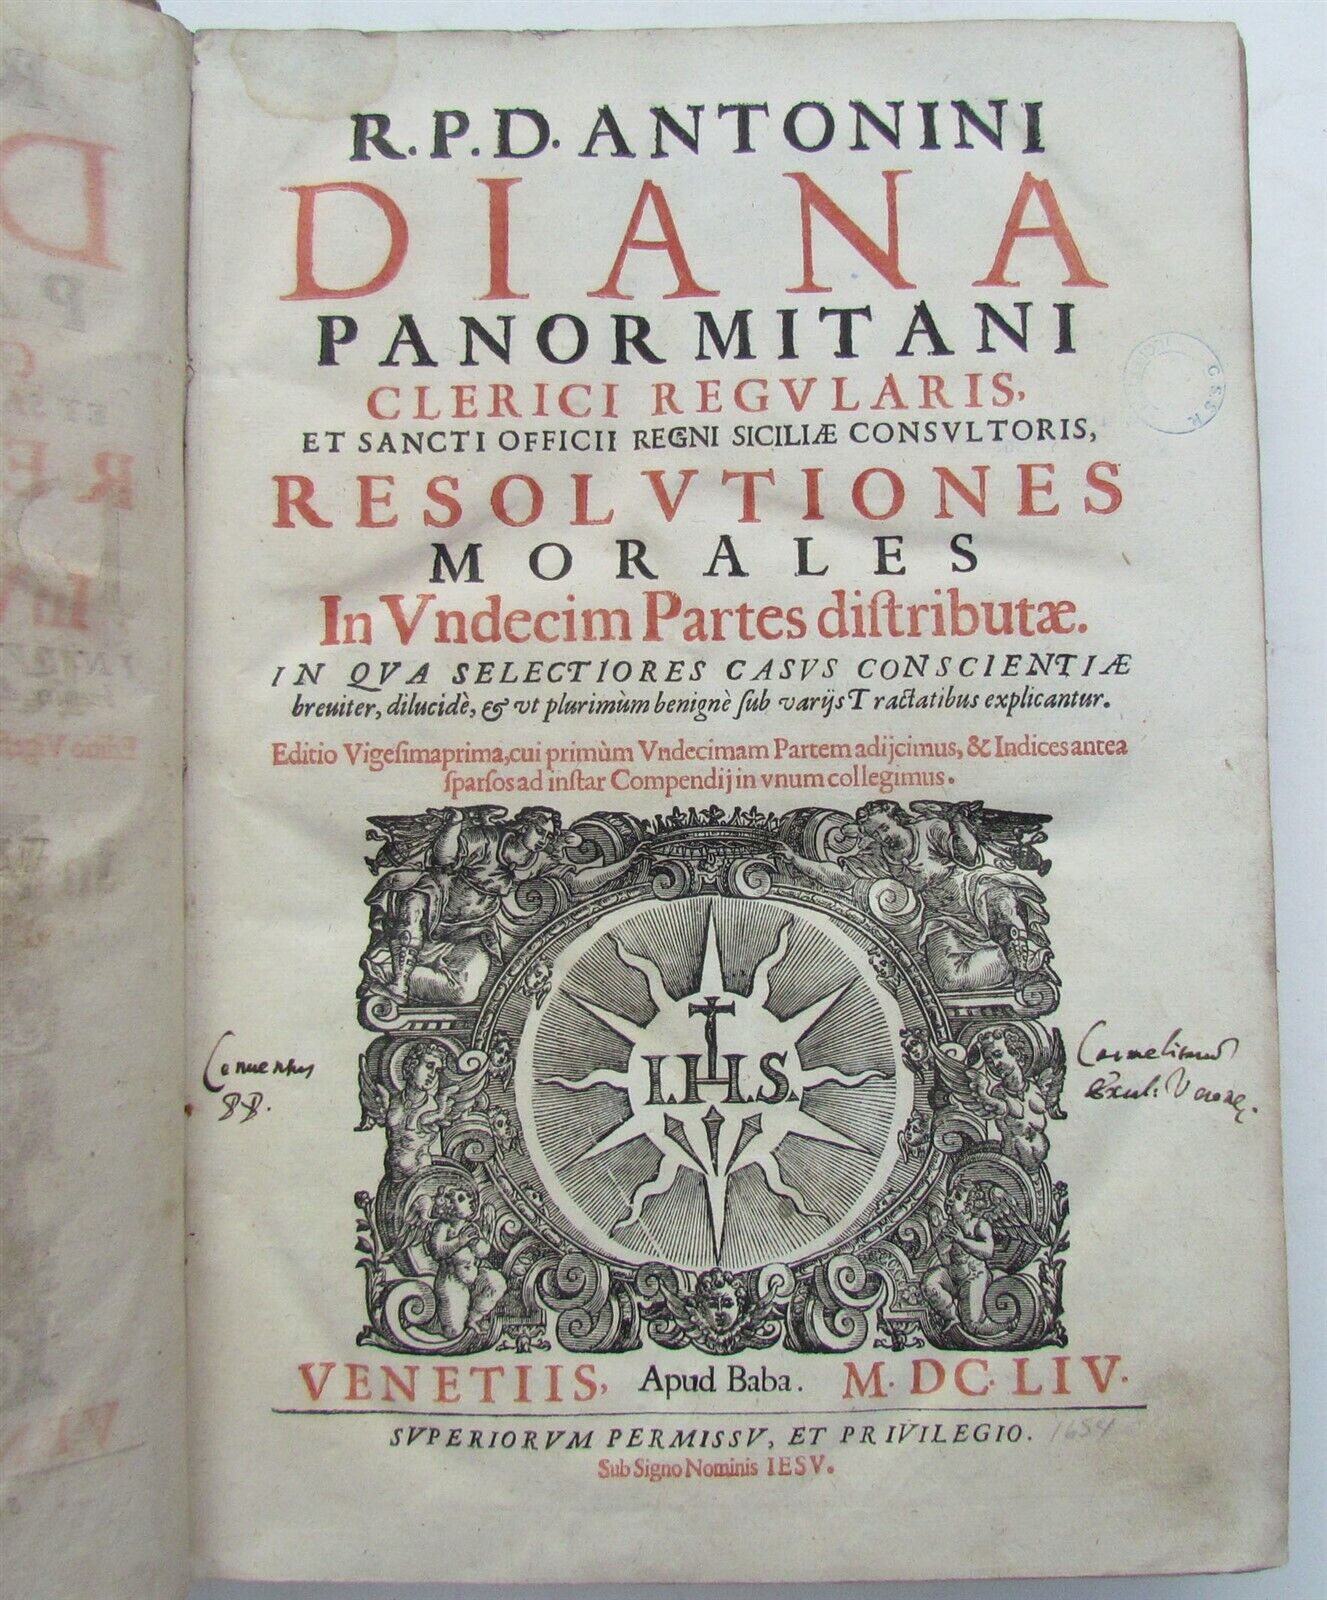 R.P.D. ANTONINI
DIANA
PANORMITANI
CLERICI REGVLARIS,
ET SANCTI OFFICII REGNI SICILIÆ CONSVLTORIS,
RESOLVTIONES
MORALES
In Vndecim Partes distributæ.
IN QVA SELECTIORES CASVS CONSCIENTIÆ
breuiter, dilucidè, & vt plurimùm benignè sub varijs Tractatibus explicantur.
Editio Vigesimaprima, cui primùm Vndecimam Partem adijcimus, & Indices antea
sparsos ad instar Compendij in vnum collegimus.
I.H.S.
Conuentus
PP.
Carmelitarum
Excal: Veronę.
VENETIIS, Apud Baba. M.DC.LIV.
SVPERIORVM PERMISSV, ET PRIVILEGIO. 1654
Sub Signo Nominis IESV.
CSSR